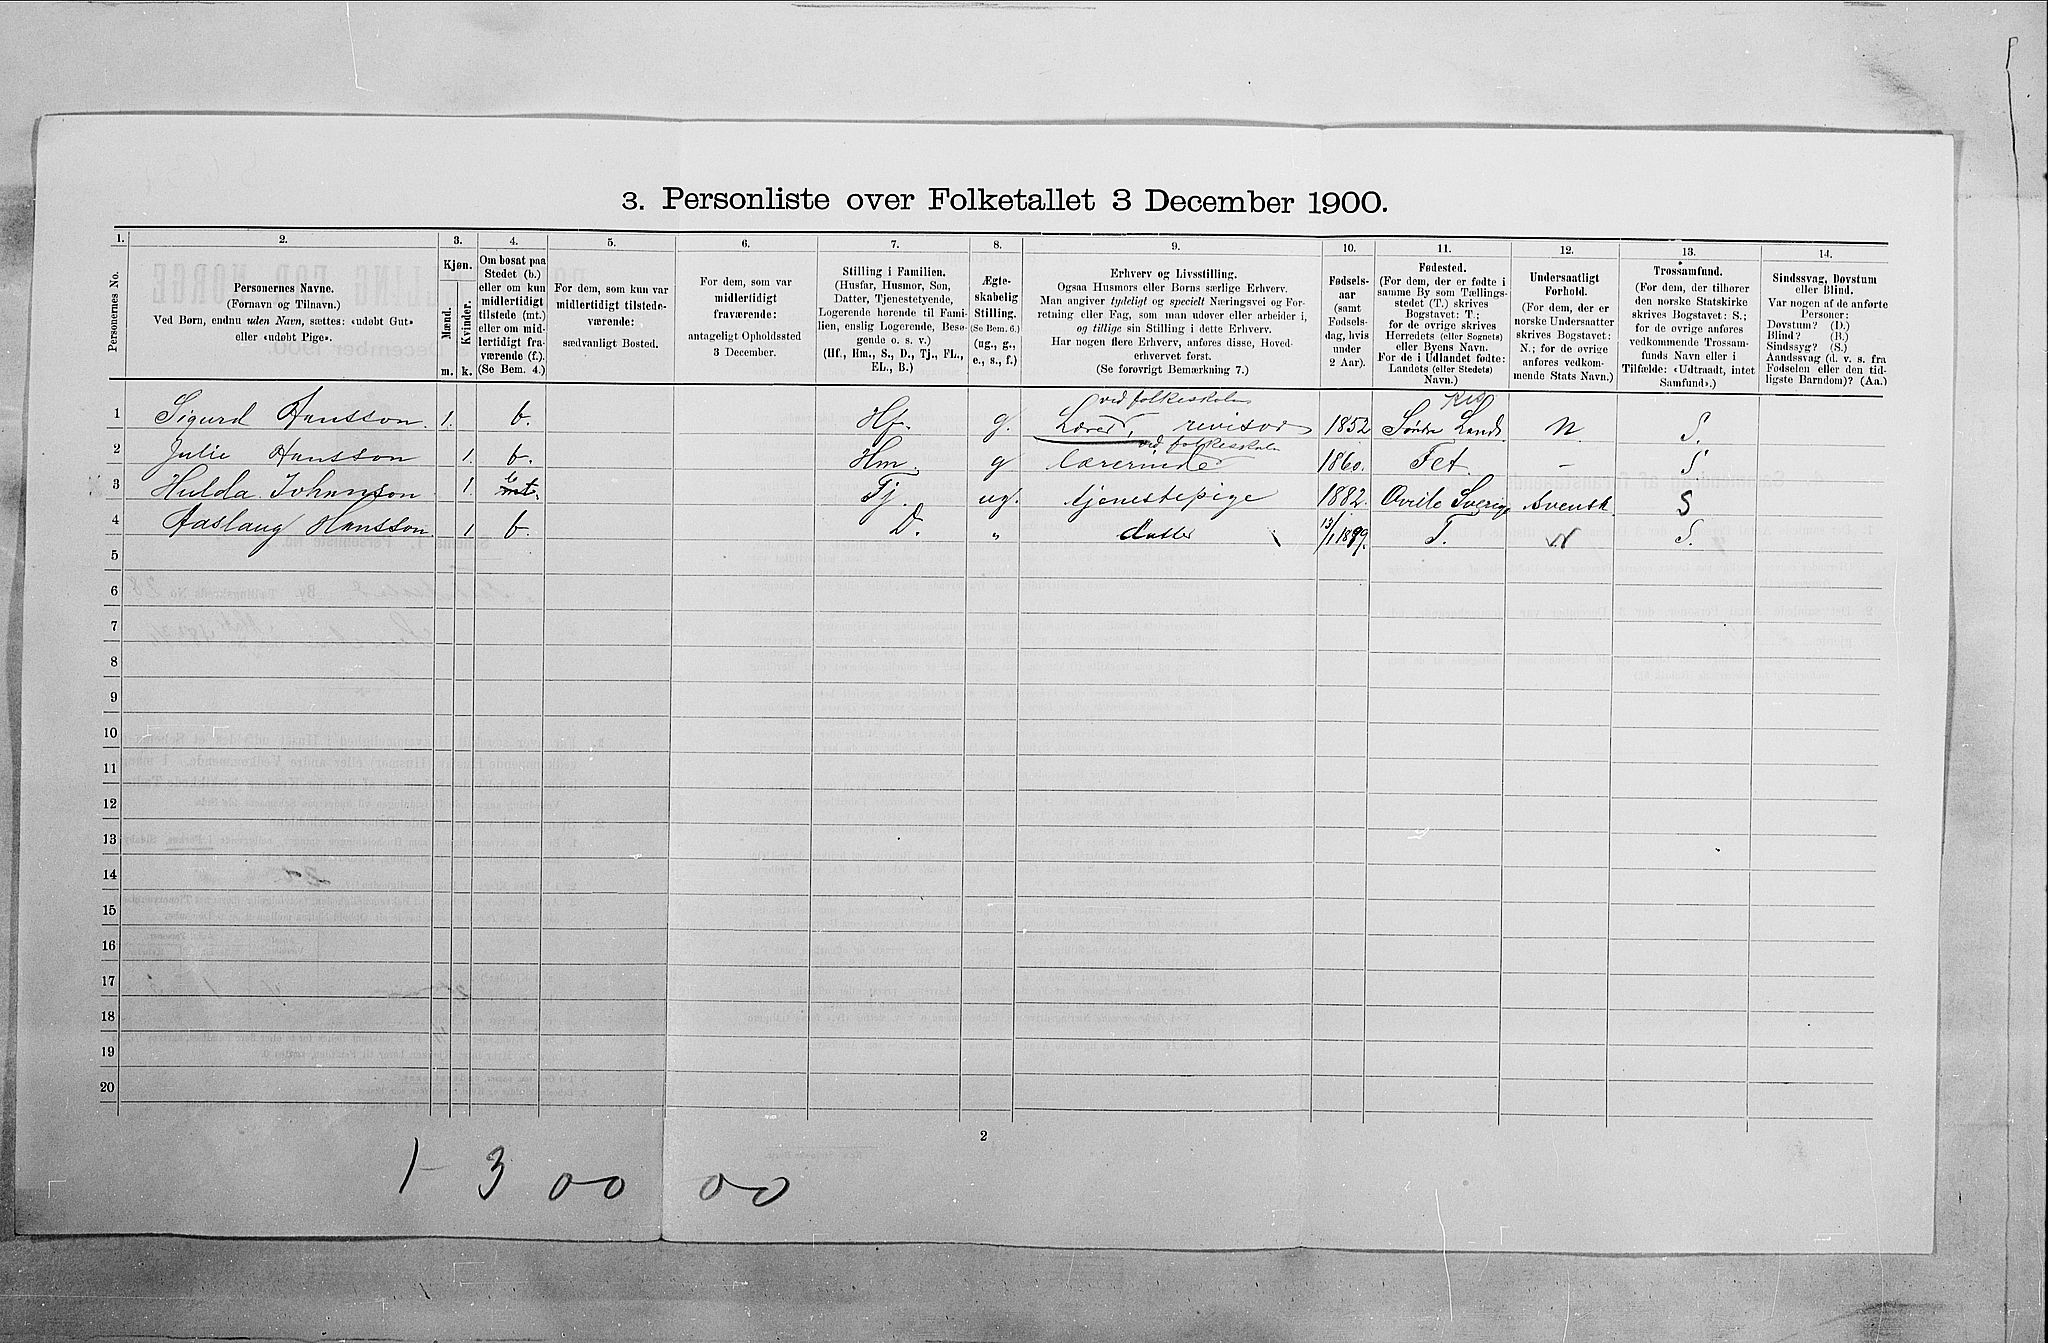 3. Personliste over Folketallet 3 December 1900.
1. 2. 3. 4. 5. 6. 7. 8. 9. 10. 11. 12. 13. 14.
Personernes No.
Personernes Navne.
(Fornavn og Tilnavn.)
Ved Børn, endnu uden Navn, sættes: «udøbt Gut»
eller «udøbt Pige».
Kjøn.
Mænd.
Kvinder.
m. k.
Om bosat paa
Stedet (b.)
eller om kun
midlertidigt
tilstede (mt.)
eller om mid-
lertidigt fra-
værende (f.).
(Se Bem. 4.)
For dem, som kun var
midlertidigt tilstede-
værende:
sædvanligt Bosted.
For dem, som var
midlertidigt
fraværende:
antageligt Opholdssted
3 December.
Stilling i Familien.
(Husfar, Husmor, Søn,
Datter, Tjenestetyende,
Logerende hørende til Fami-
lien, enslig Logerende, Besø-
gende o. s. v.)
(Hf., Hm., S., D., Tj., FL.,
EL., B.)
Ægte-
skabelig
Stilling.
(Se Bem. 6.)
(ug., g.,
e., s., f.)
Erhverv og Livsstilling.
Ogsaa Husmors eller Børns særlige Erhverv.
Man angiver tydeligt og specielt Næringsvei og For-
retning eller Fag, som man udøver eller arbeider i,
og tillige sin Stilling i dette Erhverv.
Har nogen flere Erhverv, anføres disse, Hoved-
erhvervet først.
(Se forøvrigt Bemærkning 7.)
Fødsels-
aar
(samt
Fødsels-
dag, hvis
under
2 Aar).
Fødested.
(For dem, der er fødte i
samme By som Tællings-
stedet (T.) skrives
Bogstavet: T.;
for de øvrige skrives
Herredets (eller Sognets)
eller Byens Navn.
For de i Udlandet fødte:
Landets (eller Stedets)
Navn.)
Undersaatligt
Forhold.
(For dem, der er
norske Undersaatter
skrives Bogstavet:
N.; for de øvrige
anføres vedkom-
mende Stats Navn.)
Trossamfund.
(For dem, der tilhører
den norske Statskirke
skrives Bogstavet: S.;
for de øvrige anføres
vedkommende Trossam-
funds Navn eller i
Tilfælde: «Udtraadt, intet
Samfund».)
Sindssvag, Døvstum
eller Blind.
Var nogen af de anførte
Personer:
Døvstum? (D.)
Blind? (B.)
Sindssyg? (S.)
Aandssvag (d. v. s. fra
Fødselen eller den tid-
ligste Barndom)? (Aa.)
ved folkeskolen
1 Sigurd Hansson. 1. b. Hf. g. Lærer, revisor 1852 Søndre Land. N. S.
ved folkeskolen
2 Julie Hansson 1. b. Hm. g Lærerinde 1860. Fet. – S
3 Hulda Johanson 1. b mt. Tj. ug. tjenestepige 1882. Sverige Svensk. S
4 Aaslaug Hansson. 1 b. D. „ datter 13/1 1899. T. N S.
5
6
7
8
9
10
11
12
13
14
15
16
17
18
19
20
2
1 - 3 00 00